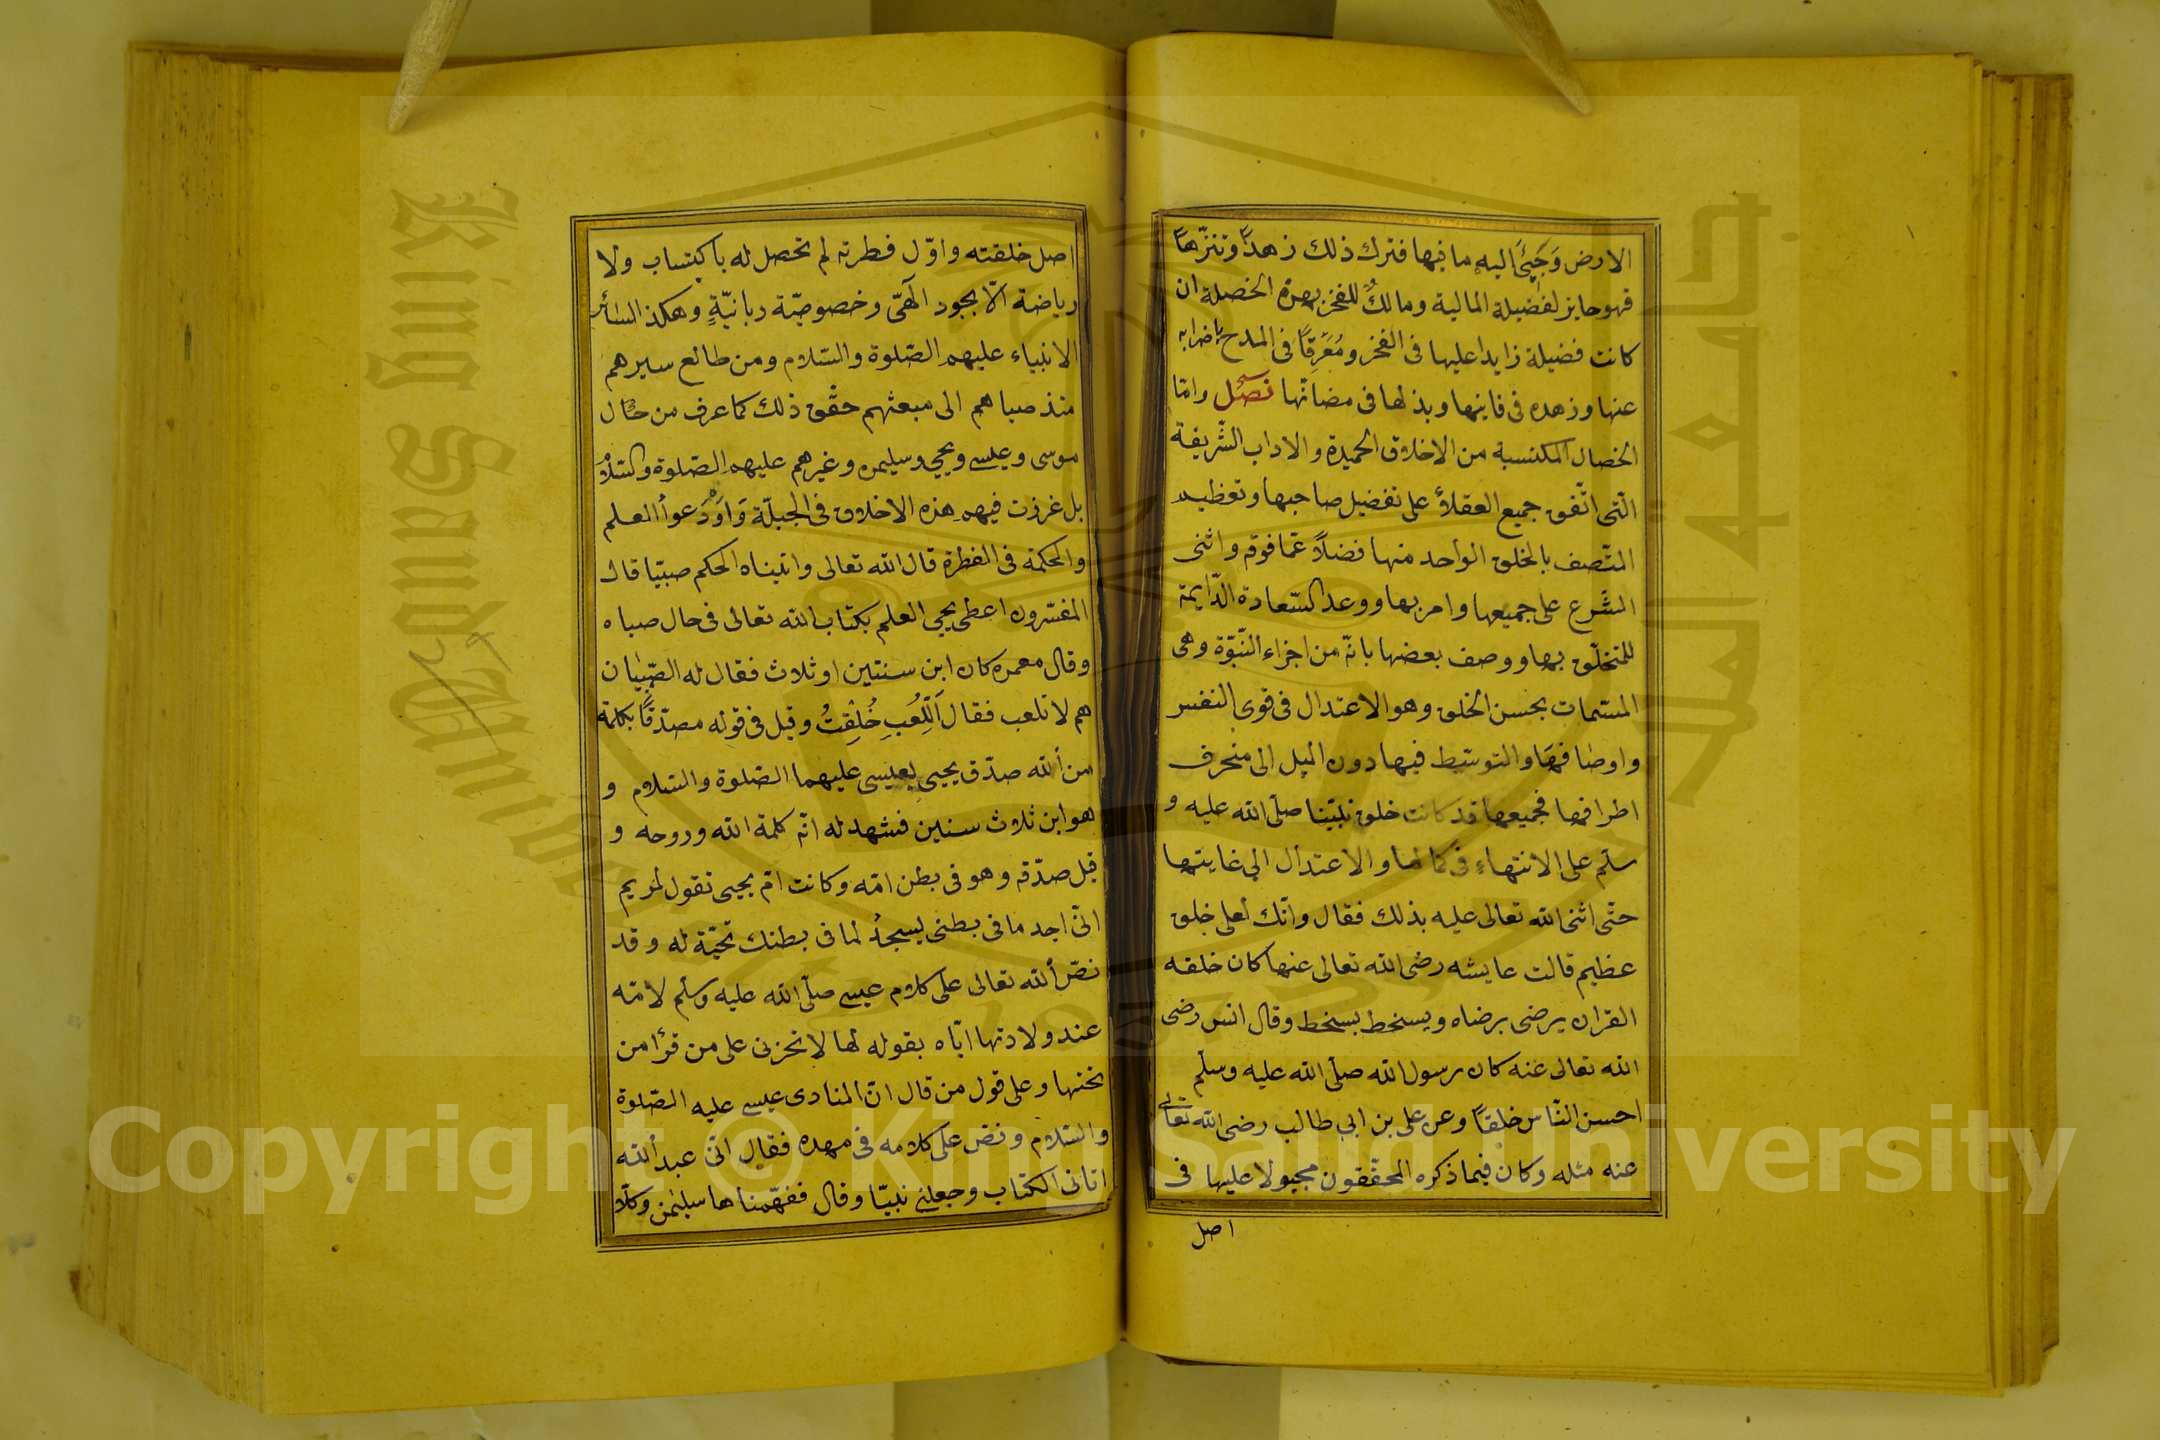 الارض وَجَبَىَ اليه ما فيها فترك ذلك زهدًا وتنزّهًا
فهو حايز لفضيلة المالية ومالكٌ للفخر بهذه الخصلة ان
كانت فضيلة زايدا عليها فى الفخر ومُعَرِقًا فى المدح باضرابه
عنها وزهده فى فاينها وبذلها فى مضانّها فصل وامّا
الخصال المكتسبة من الاخلاق الحميدة والاداب الشّريفة
الّتى اتّفق جميع العقلاء على تفضيل صاحبها وتعظيم
المتّصف بالخلق الواحد منها فضلاً عمّا فوقه واثنى
الشّرع على جميعها وامر بها ووعد السّعادة الدّايمة
للمتخلّق بها ووصف بعضها بانّه من اجزاء النّبوّة وهى
المسّمات بحسن الخلق وهو الاعتدال فى قوى النفس
واوصافها والتوسّط فيها دون الميل الى منحرف
اطرافها فجميعها قد كانت خلق نبيّنا صلّى الله عليه و
سلّم على الانتهاء فى كمالها والاعتدال الى غايتها
حتّى اثنى الله تعالى عليه بذلك فقال وانّك لعلى خلق
عظيم قالت عايشه رضى الله تعالى عنها كان خلقه
القران يرضى برضاه ويسخط بسخط وقال انس رضى
الله تعالى عنه كان رسول الله صلّى الله عليه وسلّم
احسن النّاس خلقًا وعن على بن ابي طالب رضى الله تعالى
عنه مثله وكان فيما ذكره المحقّقون مجبولا عليها فى
اصل
اصل خلقته واوّل فطرته لم تحصل له باكتساب ولا
رياضة الّا بجود الٓهىّ وخصوصيّة ربانيّةٍ وهكذا لسائر
الانبياء عليهم الصّلوة والسّلام ومن طالع سيرهم
منذ صباهم الى مبعثهم حقّق ذلك كما عرف من حال
موسى وعيسى ويحيي وسليمن وغيرهم عليهم الصّلوة والسّلام
بل غرزت فيهم هذه الاخلاق فى الجبلّة وَاَوْدَعوا العلم
والحكمة فى الفطرة قال الله تعالى واتيناه الحكم صبيّا قال
المفسّرون اعطى يحيى العلم بكتاب الله تعالى فى حال صباه
وقال معمره كان ابن سنتين او ثلاث فقال له الصّبيان
هم لا تلعب فقال اَلِلَّعْبِ خُلِقِتُ وقيل فى قوله مصدّقًا بكلمة
من الله صدّق يحيى بعيسى عليهما الصّلوة والسّلام و
هو ابن ثلاث سنين فشهد له انّه كلمة الله وروحه و
قيل صدّقه وهو فى بطن امّه وكانت امّ يحيى تقول لمريم
انّى اجد ما فى بطنى يسجدُ لما فى بطنك تحيّة له وقد
نصّ الله تعالى على كلام عيسى صلّى الله عليه وسلّم لامّه
عند ولادتها ايّاه بقوله لها لا تحزنى على من قرأ من
تحتها وعلى قول من قال انّ المنادى عيسى عليه الصّلوة
والسّلام ونصّ على كلامه فى مهده فقال انّى عبد الله
اتانى الكتاب وجعلنى نبيّا وقال ففهّمناها سليمٰن وكلّا
Copyright © King Saud University